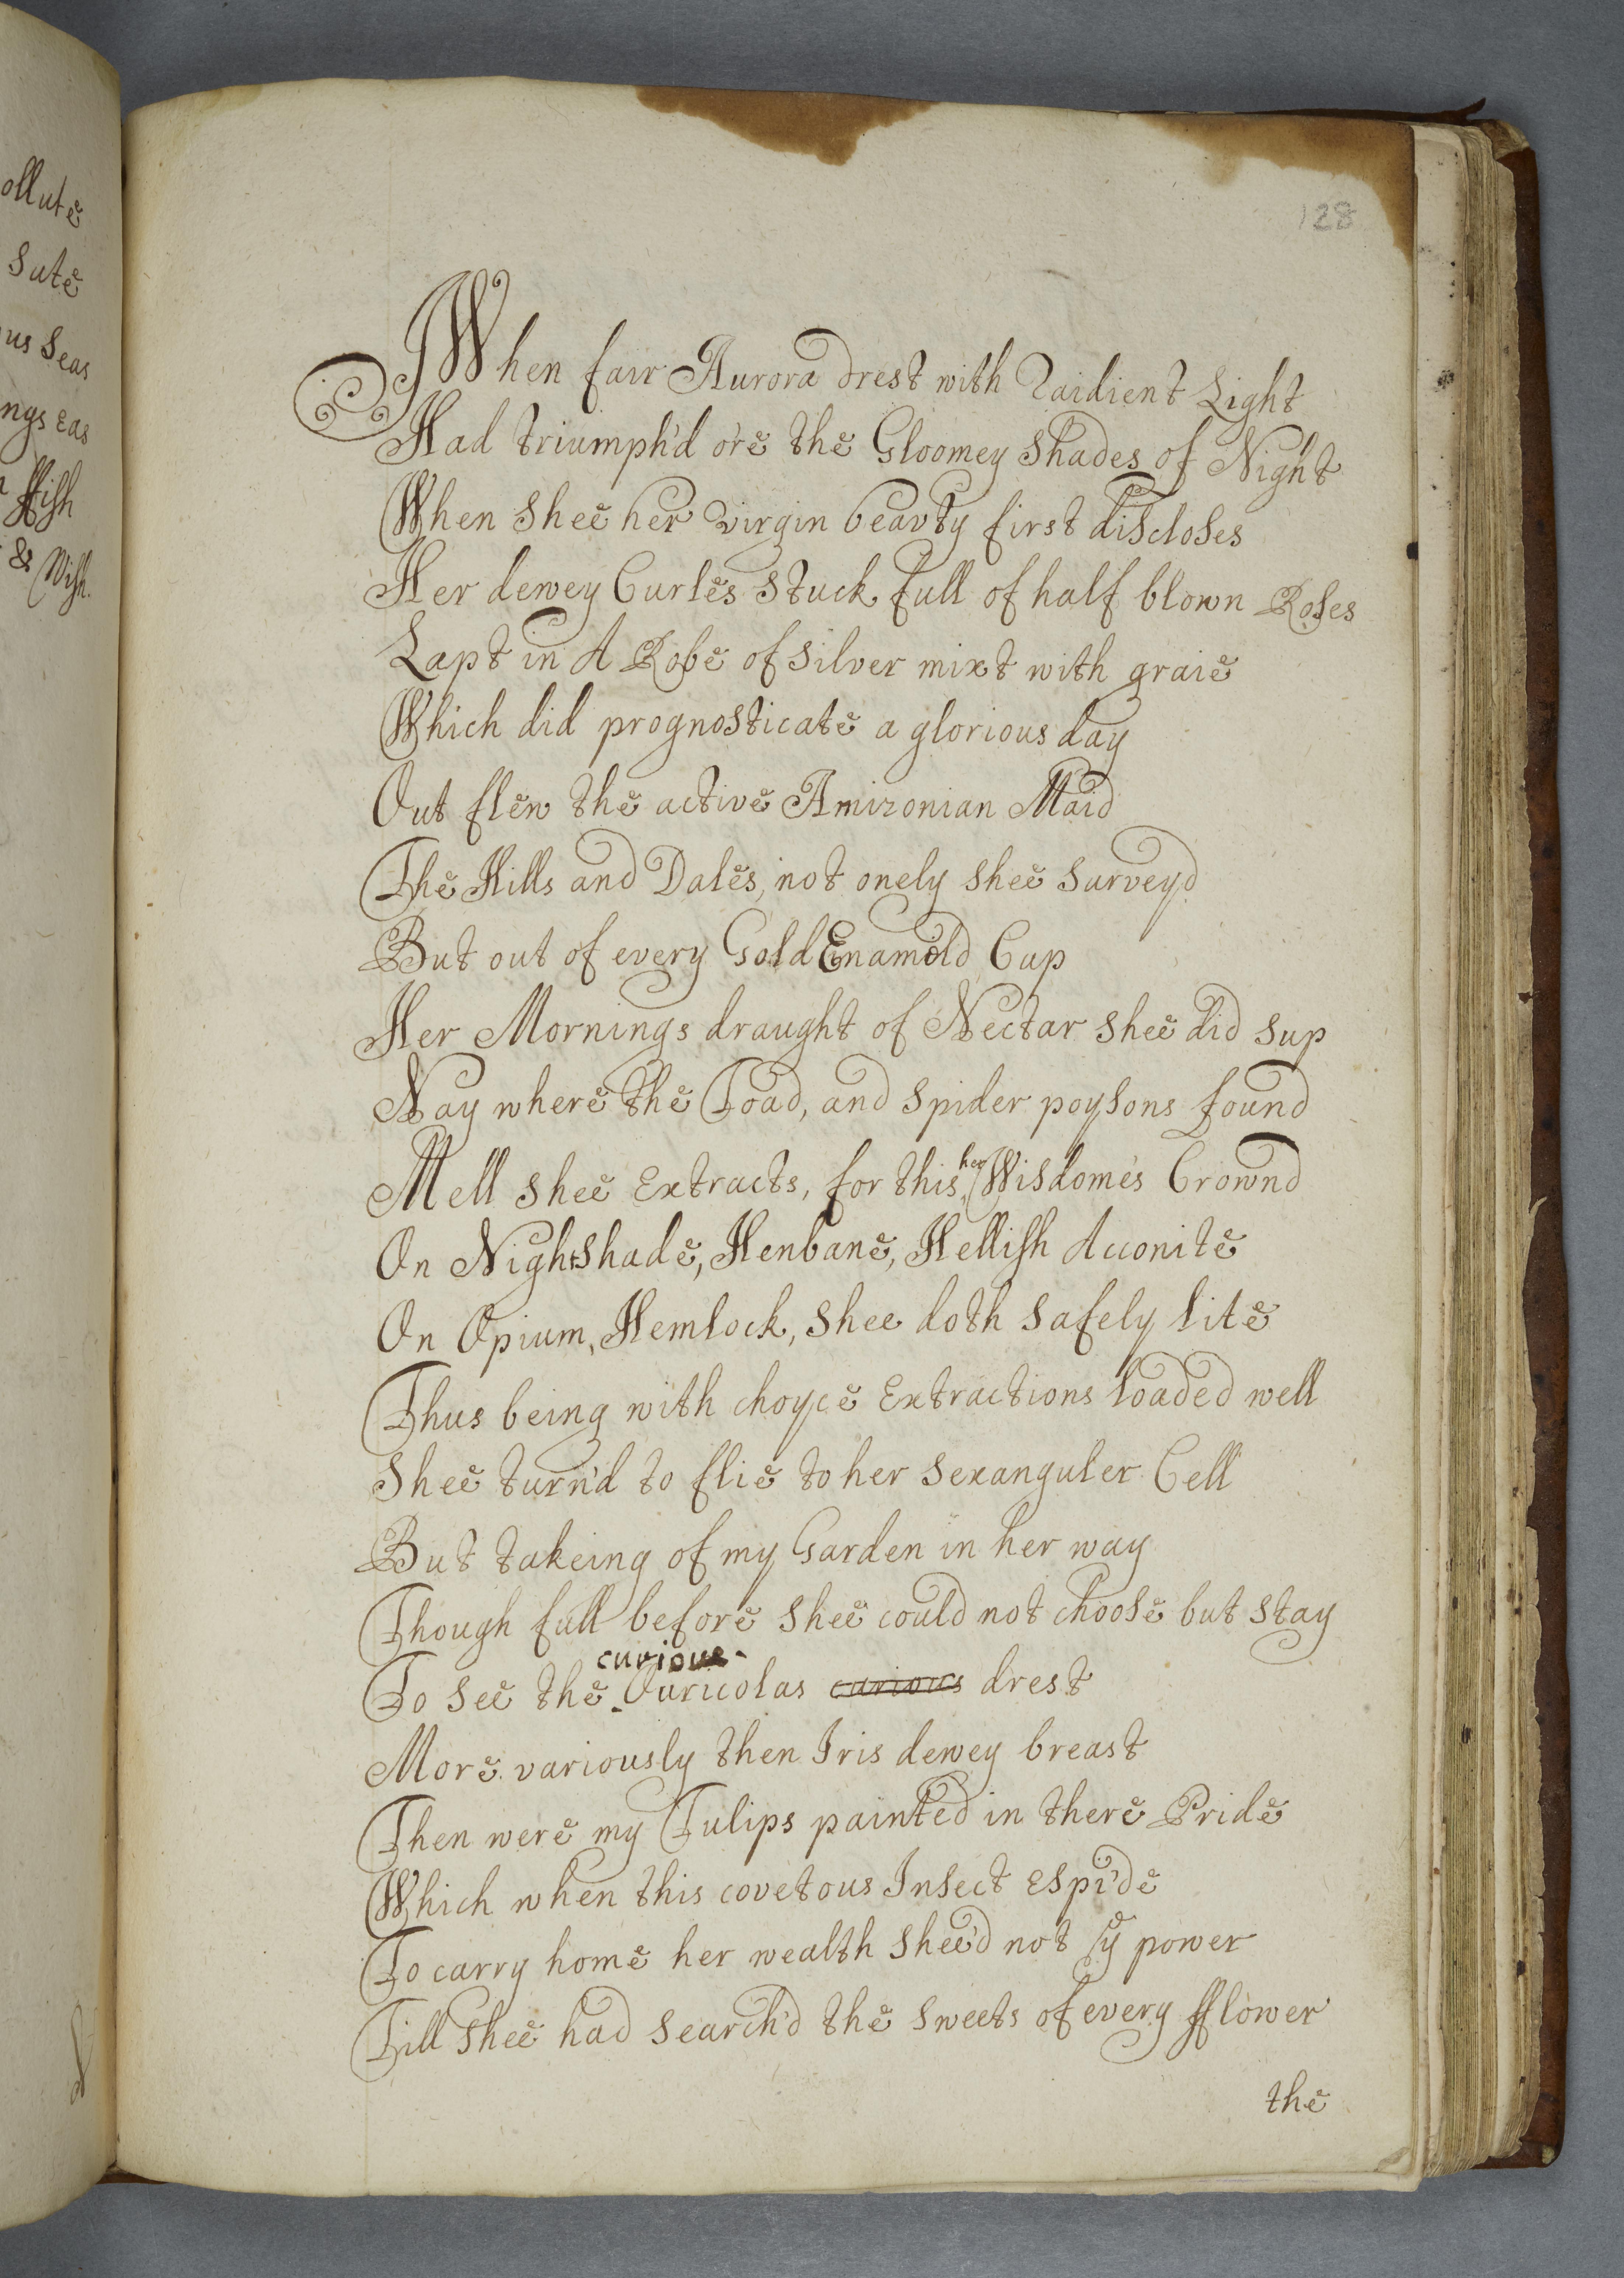 ollute
Sute
us Seas
ngs Eas
ffish
& Wish.
128
When fair Aurora drest with Raidient Light
Had triumph'd o're the Gloomey Shades of Night
When Shee her virgin beavty first discloses
Her dewey Curles Stuck full of half blown Roses
Lapt in A Robe of Silver mixt with graie
Which did prognosticate a glorious day
Out flew the active Amizonian Maid
The Hills and Dales, not onely shee Survey'd
But out of every Gold Enamold Cup
Her Mornings draught of Nectar shee did sup
Nay where the Toad, and Spider poysons found
Mell shee Extracts, for this her Wisdome's Crown'd
On NightShade, Henbane, Hellish Acconite
On Opium, Hemlock, Shee doth Safely lite
Thus being with choyce Extractions loaded well
Shee turn'd to flie to her Sexanguler Cell
But takeing of my Garden in her way
Though full before shee could not choose but stay
To See the curious Ouricolas curious drest
More variously then Iris dewey breast
Then were my Tulips painted in there Pride
Which when this covetous Insect Espi'de
To carry home her wealth shee'd not ye power
Till Shee had Search'd the Sweets of every fflower
the